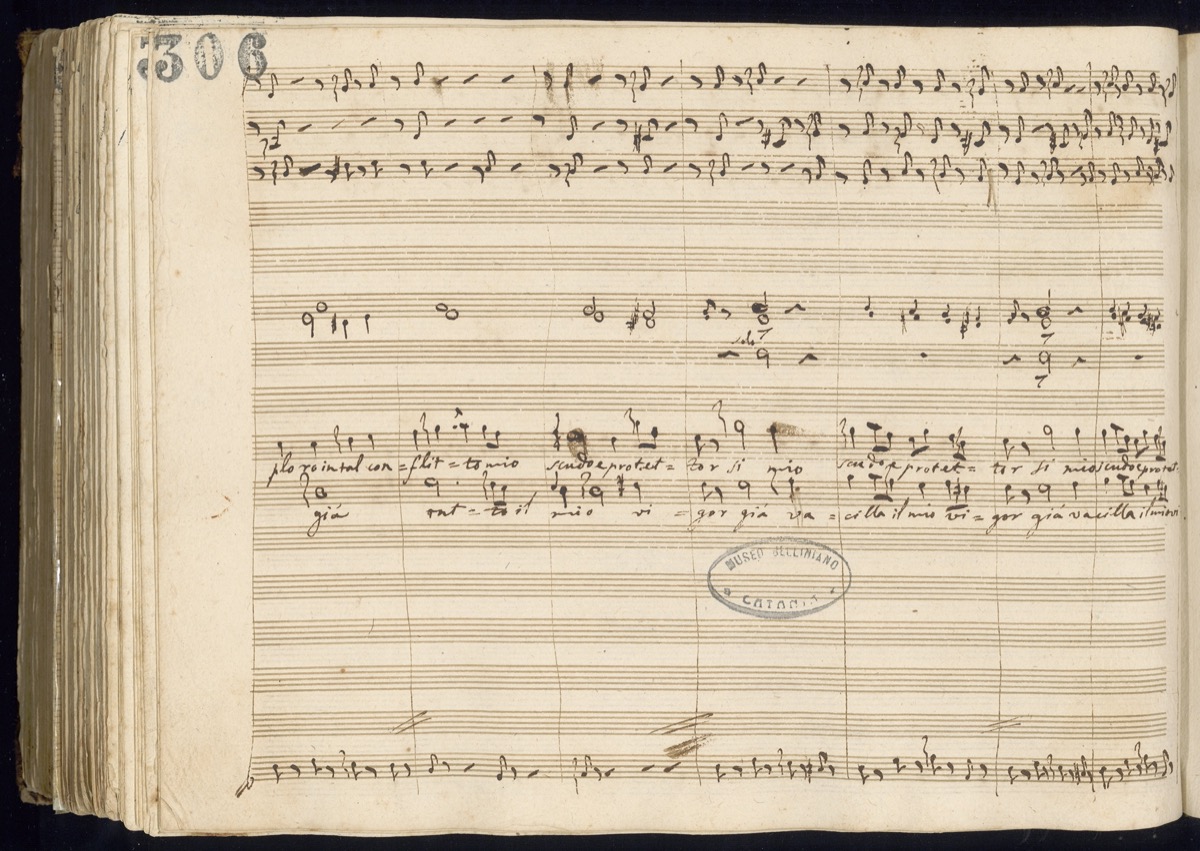 306
solo
ploro in tal con=flit=to mio scudo e protet=tor si mio scudo e protet=tor si mio scudo e protet
già ent=to il mio vi=gor già va=cilla il mio vi=gor già vacilla il mio vi
MUSEO BELLINIANO
CATANIA